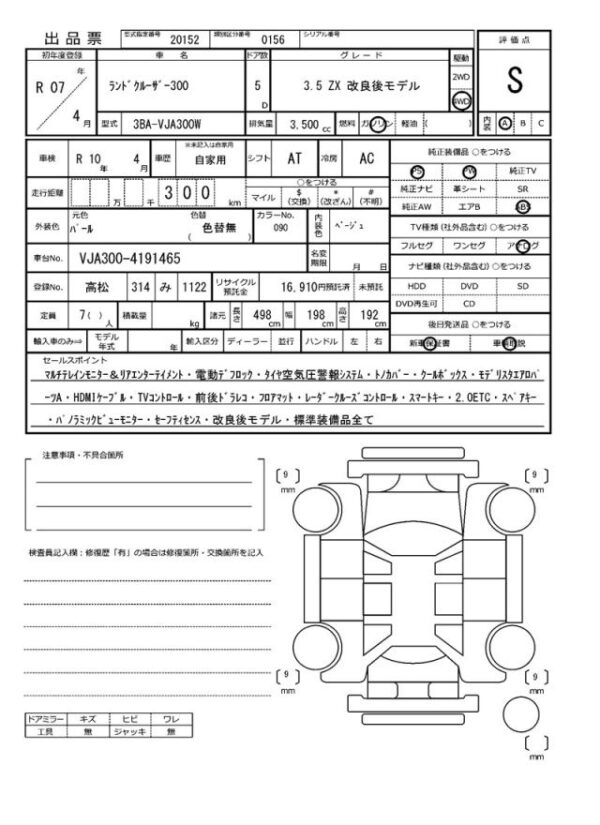 出品票 型式指定番号 20152 類別区分番号 0156 シリアル番号
評価点
S
内装 A B C
初年度登録 車名 ドア数 グレード 駆動
R 07 年 4 月 ﾗﾝﾄﾞｸﾙｰｻﾞｰ300 5 D 3.5 ZX 改良後モデル 2WD 4WD
型式 3BA-VJA300W 排気量 3,500 cc 燃料 ガソリン 軽油 ( )
車検 R 10 年 4 月 車歴 ※未記入は自家用 自家用 シフト AT 冷房 AC
走行距離 万 千 300 km ○をつける マイル $ (交換) * (改ざん) # (不明)
外装色 元色 ﾊﾟｰﾙ 色替 ( 色替無 ) カラーNo. 090 内装色 ﾍﾞｰｼﾞｭ
車台No. VJA300-4191465 名変期限 月 日
登録No. 高松 314 み 1122 リサイクル預託金 16,910円預託済 未預託
定員 7( ) 人 積載量 kg 諸元 長さ 498 cm 幅 198 cm 高さ 192 cm
輸入車のみ⇒ モデル年式 年 輸入区分 ディーラー 並行 ハンドル 左 右
純正装備品 ○をつける
PS PW 純正TV
純正ナビ 革シート SR
純正AW エアB ABS
TV種類 (社外品含む) ○をつける
フルセグ ワンセグ アナログ
ナビ種類 (社外品含む) ○をつける
HDD DVD SD
DVD再生可 CD
後日発送品 ○をつける
新車保証書 車輌取説
セールスポイント
ﾏﾙﾁﾃﾚｲﾝﾓﾆﾀｰ&ﾘｱｴﾝﾀｰﾃｲﾒﾝﾄ・電動ﾃﾞﾌﾛｯｸ・ﾀｲﾔ空気圧警報ｼｽﾃﾑ・ﾄﾉｶﾊﾞｰ・ｸｰﾙﾎﾞｯｸｽ・ﾓﾃﾞﾘｽﾀｴｱﾛﾊﾟ
ｰﾂA・HDMIｹｰﾌﾞﾙ・TVｺﾝﾄﾛｰﾙ・前後ﾄﾞﾗﾚｺ・ﾌﾛｱﾏｯﾄ・ﾚｰﾀﾞｰｸﾙｰｽﾞｺﾝﾄﾛｰﾙ・ｽﾏｰﾄｷｰ・2.0ETC・ｽﾍﾟｱｷｰ
・ﾊﾟﾉﾗﾐｯｸﾋﾞｭｰﾓﾆﾀｰ・ｾｰﾌﾃｨｾﾝｽ・改良後ﾓﾃﾞﾙ・標準装備品全て
注意事項・不具合箇所
検査員記入欄：修復歴「有」の場合は修復箇所・交換箇所を記入
9 mm
9 mm
9 mm
9 mm
mm
ドアミラー キズ ヒビ ワレ
工具 無 ジャッキ 無